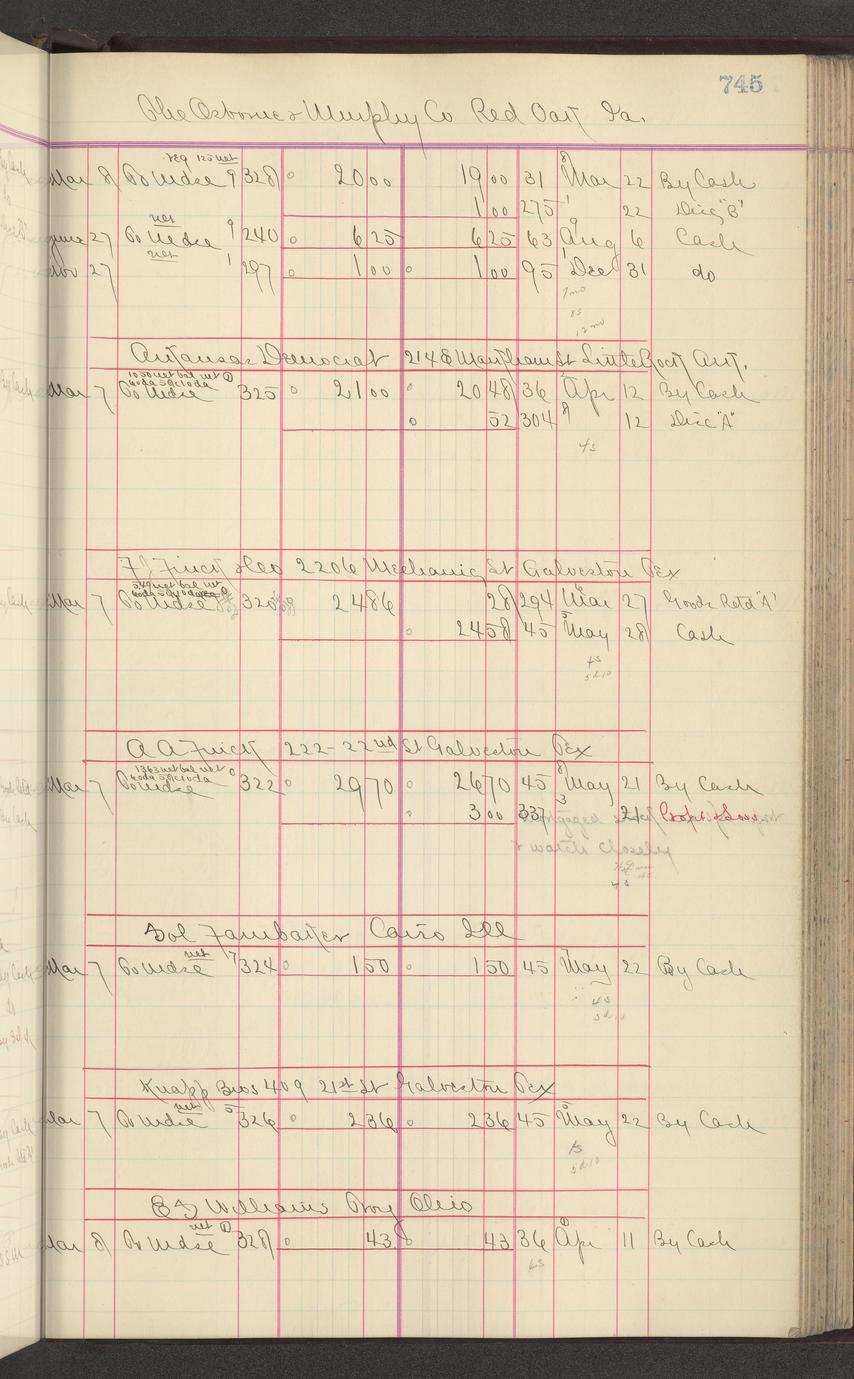 745
The Osborne & Murphy Co Red Oak Ia.
reg 125 net
Mar 8 To Mdse 9 328 20 00 19 00 31 8 Mar 22 By Cash
1 00 275 1 22 Disc "B"
net
June 27 To Mdse 9 240 6 25 6 25 63 9 Aug 6 Cash
net
Nov 27 1 297 1 00 1 00 95 1 Dec 31 do
7 mo
8s
12 mo
Arkansas Democrat 2148 Markham St Little Rock Ark.
1050 net bal net 1
60da 5% 10da
Mar 7 To Mdse 325 21 00 20 48 36 Apr 12 By Cash
52 304 8 12 Disc "A"
4s
Finck 2206 Mechanic St Galveston Tex
549 net bal net
60da 5% 10da
Mar 7 To Mdse 320 24 86 28 294 6 Mar 27 Goods Retd "A"
24 58 45 5 May 28 Cash
4s
5d10
A A Finck 222-22nd St Galveston Tex
1363 net bal net 0
60da 5% 10da
Mar 7 To Mdse 322 29 70 26 70 45 8 May 21 By Cash
3 00 337 3 21
& watch closely
4s
Sol Farnbaker Cairo Ill
net
Mar 7 To Mdse 17 324 1 50 1 50 45 May 22 By Cash
4s
5d10
Knapp Bros 409 21st St Galveston Tex
net
Mar 7 To Mdse 5 326 2 36 2 36 45 5 May 22 By Cash
5d10
Williams Troy Ohio
net 1
Mar 8 To Mdse 328 43 43 36 1 Apr 11 By Cash
4s